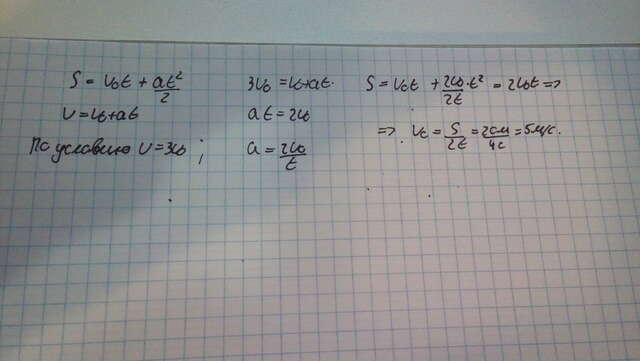 S = V₀t + at²/2
V = V₀ + at
По условию V = 3V₀ ;
3V₀ = V₀ + at.
at = 2V₀
a = 2V₀/t
S = V₀t + 2V₀·t²/2t = 2V₀t =>
=> V₀ = S/2t = 20м/4с = 5м/с.